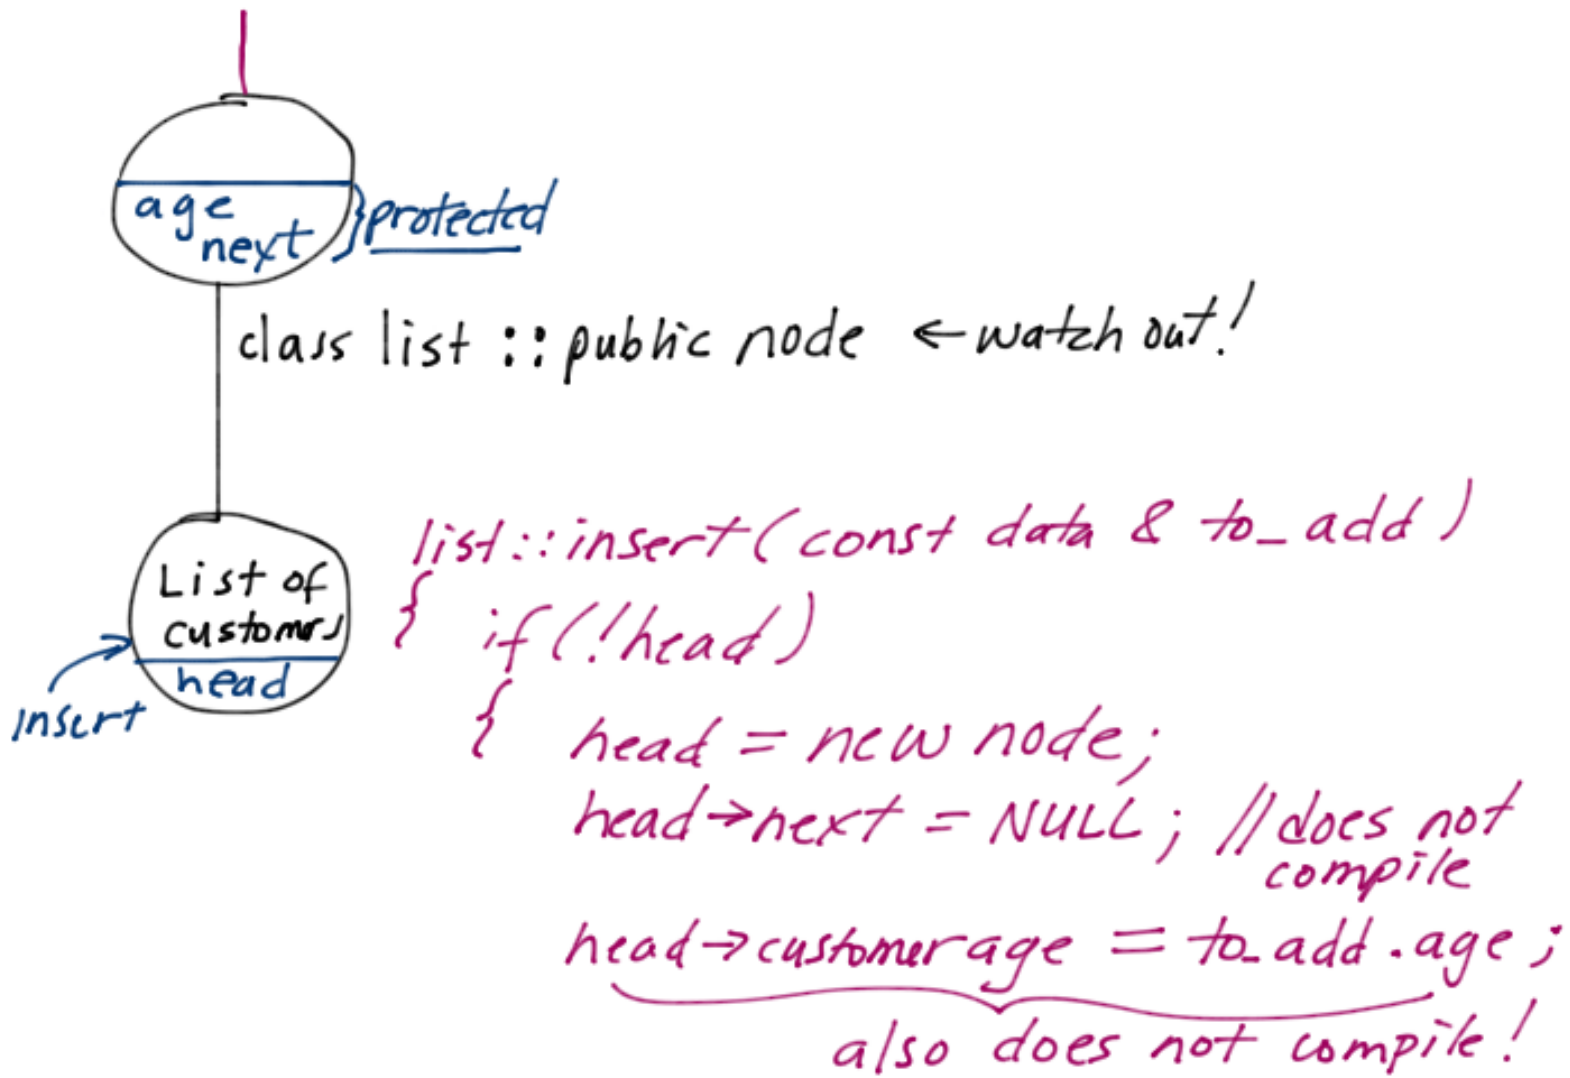 age
next } protected
class list :: public node ← watch out!
List of
customers
head
insert
list::insert(const data & to_add)
{ if(!head)
{ head = new node;
head→next = NULL; //does not
compile
head→customer age = to_add.age;
also does not compile!